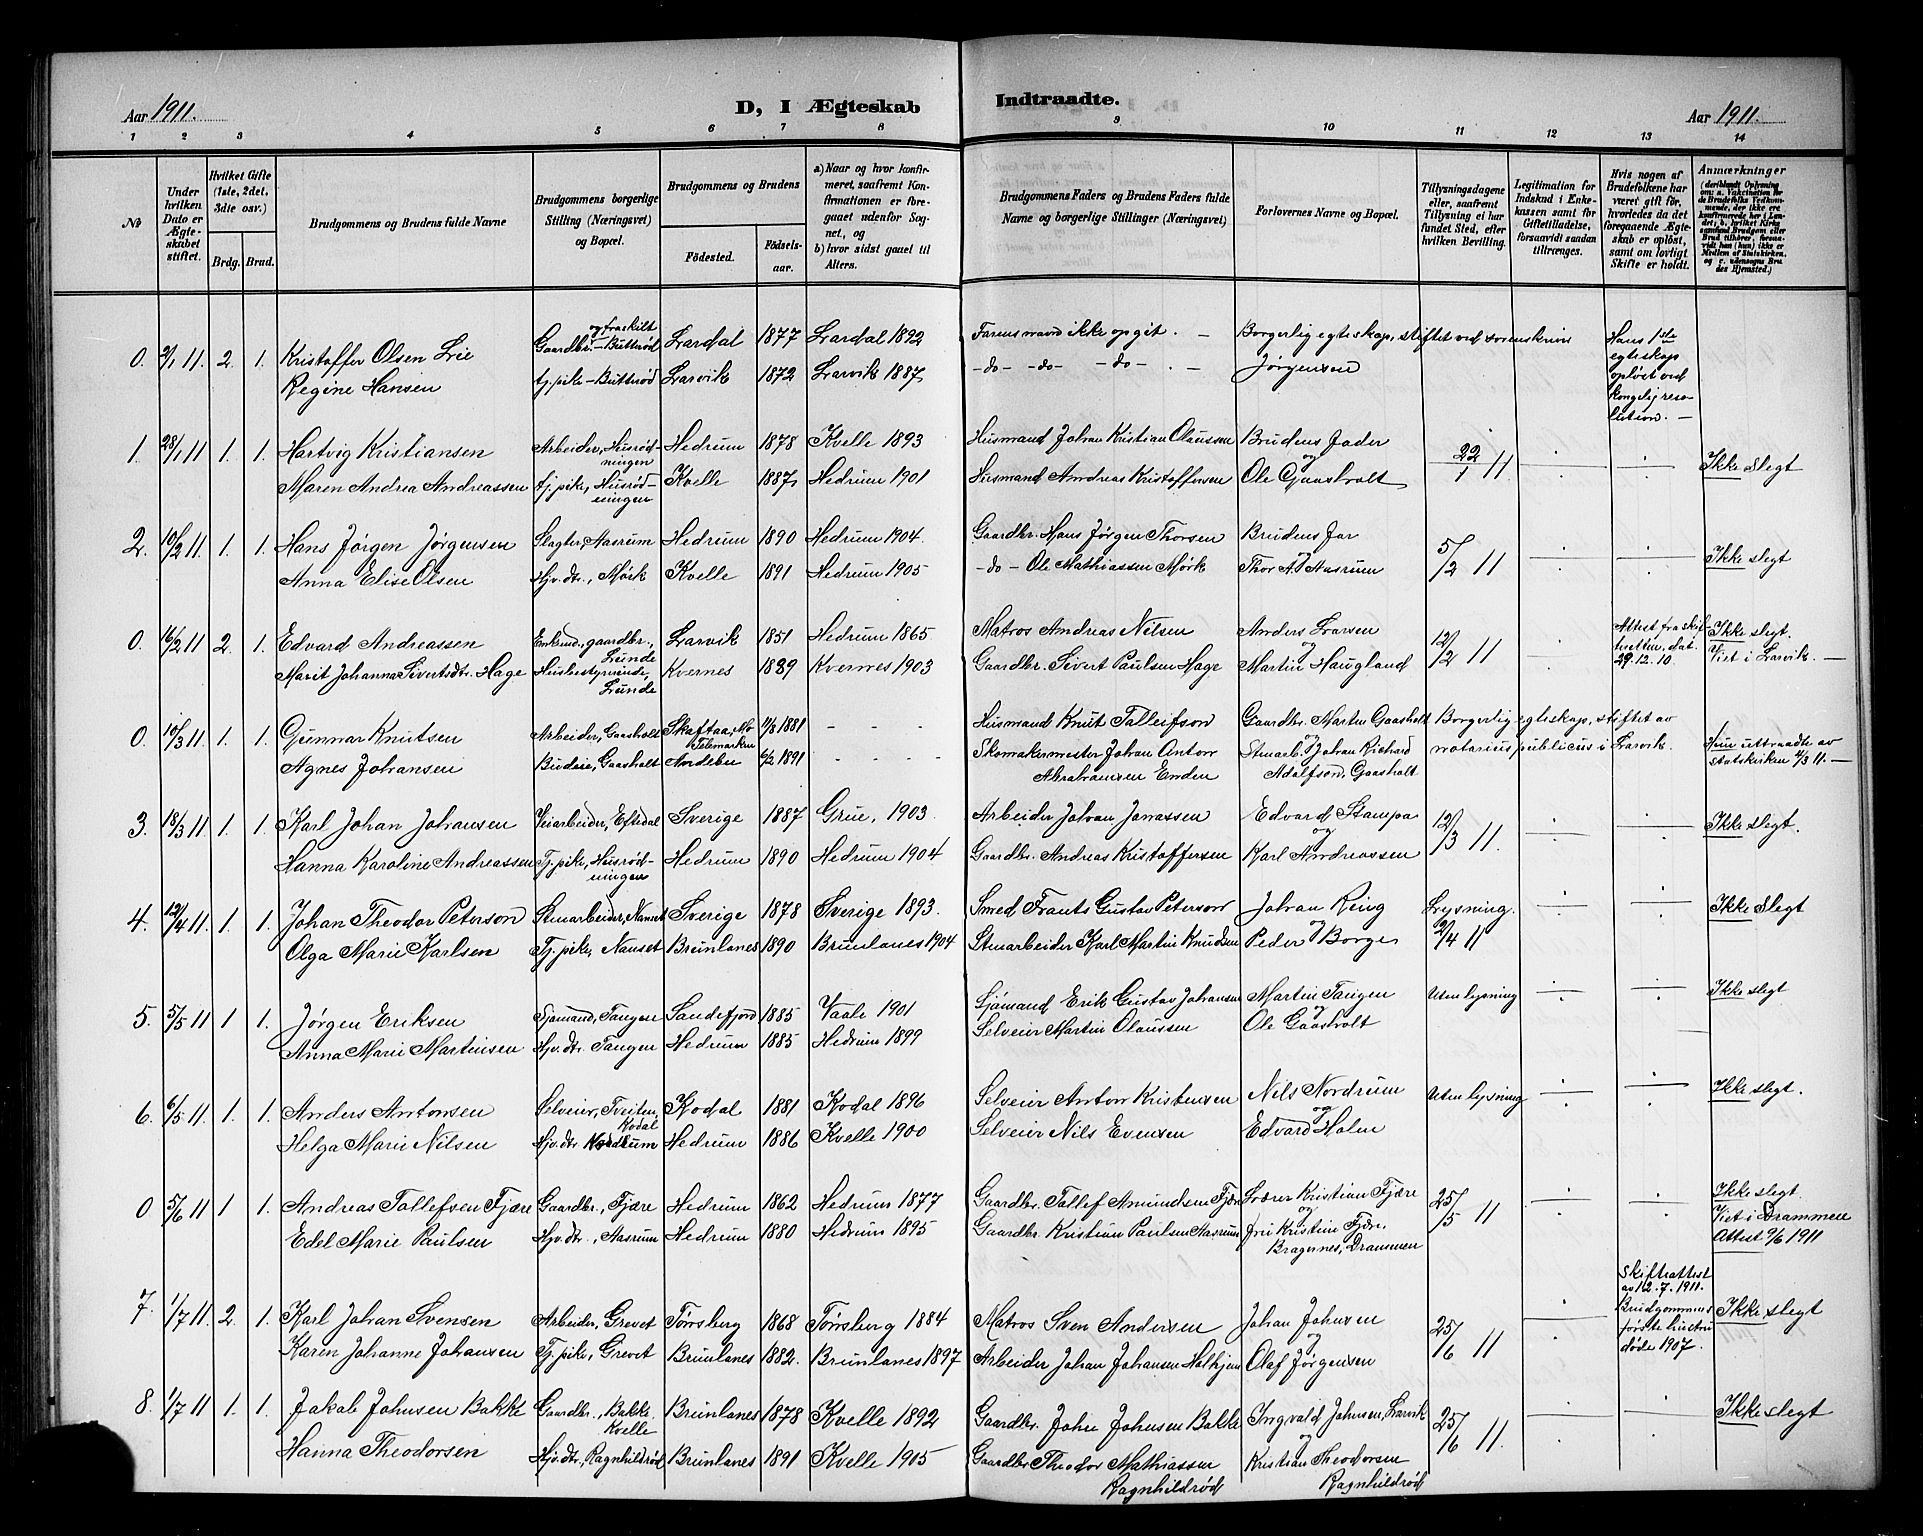 Aar 1911.
D, I Ægteskab
Indtraadte.
Aar 1911.
1 2 3 4 5 6 7 8 9 10 11 12 13 14
No
Under hvilken Dato er Ægteskabet stiftet.
Hvilket Gifte (1ste, 2det, 3die osv.)
Brdg. Brud.
Brudgommens og Brudens fulde Navne
Brudgommens borgerlige Stilling (Næringsvei) og Bopæl.
Brudgommens og Brudens
Födested.
Födselsaar.
a) Naar og hvor konfirmeret, saafremt Konfirmationen er foregaaet udenfor Sognet, og
b) hvor sidst gaaet til Alters.
Brudgommens Faders og Brudens Faders fulde Navne og borgerlige Stillinger (Næringsvei).
Forlovernes Navne og Bopæl.
Tillysningsdagene eller, saafremt Tillysning ei har fundet Sted, efter hvilken Bevilling.
Legitimation for Indskud i Enkekassen samt for Giftetilladelse, forsaavidt saadan tiltrænges.
Hvis nogen af Brudefolkene har været gift før, hvorledes da det foregaaende Ægteskab er opløst, samt om lovligt Skifte er holdt.
Anmærkninger
0. 2/1 11. 2. 1. Kristoffer Olsen Lie Gaardbr. og fraskilt - Buttrød Lardal 1877 Lardal 1892 Farens navn ikke opgit. - Borgerlig egteskap, stiftet ved sorenskriv Hans 1ste egteskap opløst ved kongelig resolution. -
Regine Hansen tj. pike - Buttrød Larvik 1872 Larvik 1887, - do - - do - - do - . - Jørgensen
1. 28/1 11. 1. 1. Hartvig Kristiansen Arbeider, Husrødningen Hedrum 1878 Kvelle 1893 Husmand Johan Kristian Olaussen Brudens Fader og 22/1 11 Ikke slegt
Maren Andrea Andreassen tj. pike, Husrødningen Kvelle 1887, Hedrum 1901 Husmand Andreas Kristoffersen Ole Gaasholt
2. 10/2 11. 1. 1. Hans Jørgen Jørgensen Slagter, Aasrum Hedrum 1890 Hedrum 1904. Gaardbr. Hans Jørgen Thorsen Brudens Far og 5/2 11 Ikke slegt
Anna Elise Olsen Hjv. dtr., Mørk Kvelle 1891 Hedrum 1905. - do - Ole Mathiassen Mørk Thor A. Aasrum
0. 16/2 11. 2. 1. Edvard Andreassen Enkemd, gaardbr., Lunde Larvik 1851 Hedrum 1865 Matros Andreas Nilsen Anders Larsen og 12/2 11 Attest fra skifteretten, dat. 29.12.10. Ikke slegt. Viet i Larvik. -
Marit Johanna Sivertsdtr. Hage Husbestyrinde, Lunde Kvernes 1889 Kvernes 1903 Gaardbr. Sivert Paulsen Hage Martin Haugland
0. 10/3 11. 1. 1. Gunnar Knutsen Arbeider, Gaasholt Skaftaa, Mo Telemarken 11/8 1881 - - - - Husmand Knut Talleifson Gaardbr. Martin Gaasholt Borgerlig egteskap, stiftet av notarius publicus i Larvik.
Agnes Johansen Budeie, Gaasholt Andebu 6/2 1891 - - - - Skomakermester Johan Anton Abrahamsen Enden Stenarb. Johan Richard Adolfson, Gaasholt Hun uttraadte av statskirken 4/3 11. -
3. 18/3 11. 1. 1. Karl Johan Johansen Veiarbeider, Eftedal Sverige 1887 Grue, 1903. Arbeider Johan Jonassen Edvard Stampa og 12/3 11. Ikke slegt.
Hanna Karoline Andreassen Tj. pike, Husrødningen Hedrum 1890 Hedrum 1904 Gaardbr. Andreas Kristoffersen Karl Andreassen
4. 12/4 11. 1. 1. Johan Theodor Peterson Stenarbeider, Nanset Sverige 1878 Sverige 1893. Smed Frants Gustav Peterson Johan Ring og Lysning. Ikke Slegt
Olga Marie Karlsen Tj. pike, Nanset Brunlanes 1890 Brunlanes 1904 Stenarbeider Karl Martin Knudsen Peder Borge 2/4 11
5. 5/5 11 1 1. Jørgen Eriksen Sjömand, Tangen Sandefjord 1885 Vaale 1901 Sjömand Erik Gustav Johansen Martin Tangen og Uten lysning Ikke slegt
Anna Marie Martinsen Hjv. dtr. Tangen Hedrum 1885 Hedrum 1899 Selveier Martin Olaussen Ole Gaasholt
6. 6/5 11. 1. 1. Anders Antonsen Selveier, Tveiten, Kodal Kodal 1881 Kodal 1896 Selveier Anton Kristensen Nils Nordrum og Uten lysning Ikke slegt.
Helga Marie Nilsen Hjv. dtr Nordrum Hedrum 1886 Kvelle 1900 Selveier Nils Evensen Edvard Holm
0 5/6 11 1 1. Andreas Tollefsen Fjære Gaardbr., Fjære Hedrum 1862 Hedrum 1877 Gaardbr. Tollef Amundsen Fjære Lærer Kristian Fjære og 25/5 11 Ikke slegt. Viet i Drammen Attest 9/6 1911
Edel Marie Paulsen Hjv. dtr., Aasrum Hedrum 1880 Hedrum 1895 Gaardbr. Kristian Paulsen Aasrum fru Kristine Fjære. Bragernes, Drammen
7. 1/7 11. 2. 1. Karl Johan Svensen Arbeider, Grevet Tønsberg 1868 Tønsberg 1884 Matros Sven Andersen Johan Johnsen og 25/6 11 Skifteattest av 12.7.1911. Brudgommens første hustru døde 1907. Ikke slegt
Karen Johanne Johansen Tj. pike, Grevet Brunlanes 1882. Brunlanes 1897 Arbeider Johan Johansen Holhjem Olaf Jørgensen
8. 1/7 11. 1. 1. Jakob Johnsen Bakke Gaardbr., Bakke, Kvelle Brunlanes 1878 Kvelle 1892 Gaardbr. John Johnsen Bakke Ingvald Johnsen, Larvik og 25/6 11. Ikke slegt
Hanna Theodorsen Hjv. dtr., Ragnhildrød Brunlanes 1891 Kvelle 1905 Gaardbr Theodor Mathiassen Ragnhildrød Kristian Theodorsen Ragnhildrød